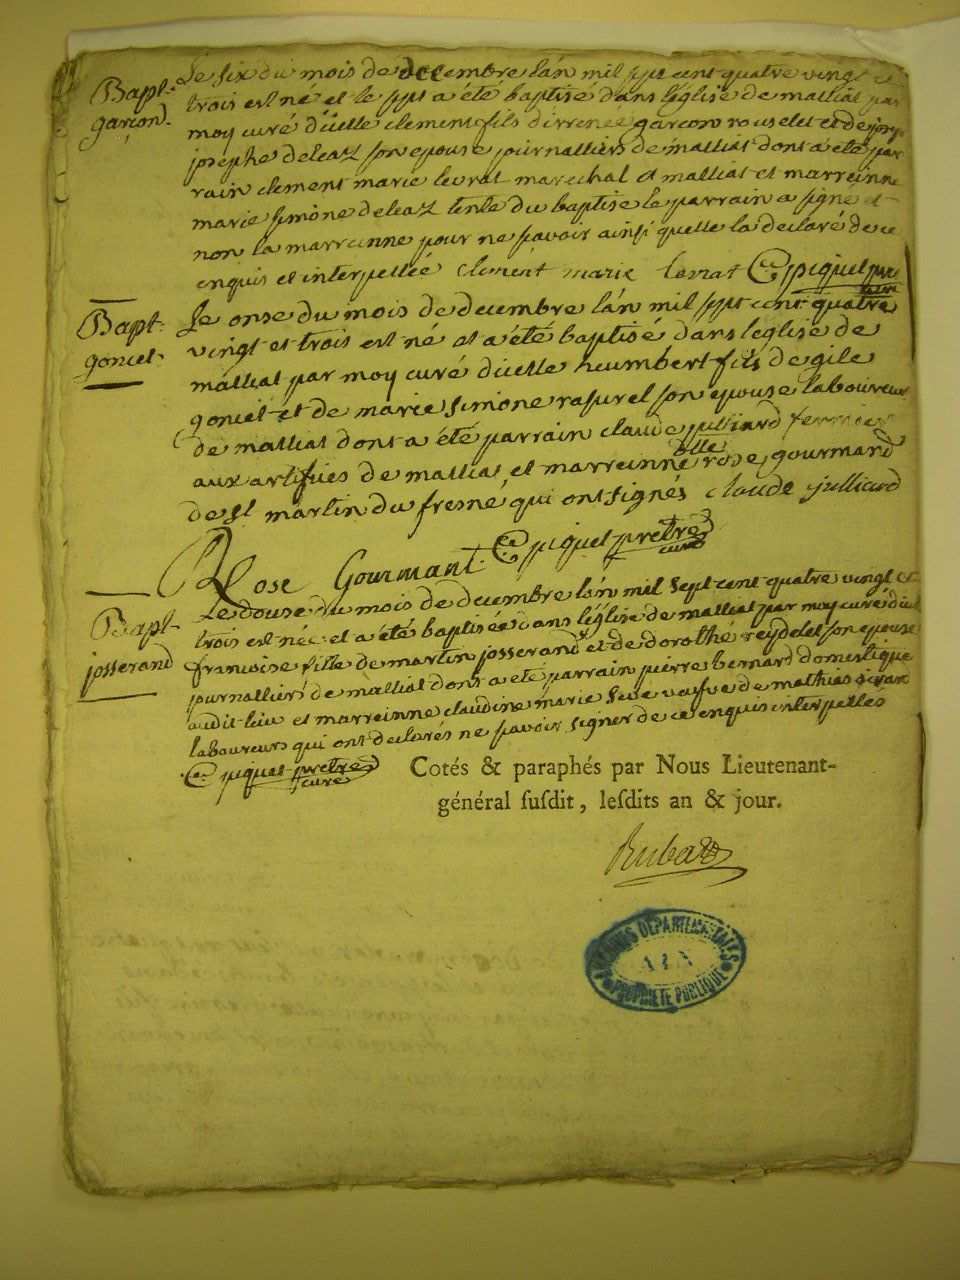 Bapt.
garcon
Le six du mois de decembre l'an mil sept cent quatre vingt et
trois est né et le sept a été baptisé dans l'église de malliat par
moy curé d'icelle clement fils d'irrenée garcon rouselet et de
josephe deleaz son epouse journalliers de malliat dont a été par
rain clement marie levrat marechal a malliat et marreinne
marie simone deleaz tente du baptise le parrain a signé et
non la marreinne pour ne savoir ainsi quelle la declaré de ce
enquis et interpellée clement marie levrat C piquet prê
Bapt.
goniet.
Le onse du mois de decembre l'an mil sept cent quatre
vingt et trois est né et a été baptisé dans l'église de
malliat par moy curé d'icelle heumbert fils de gile
goniet et de marie simone rasurel son epouse laboureur
de malliat dont a été parrain claude julliard fermier
aux artifices de malliat et marreinne dlle rose gourmand
de st martin du fresne, qui ont signés claude julliard
Rose Gourmant. C piquet prêtre
curé
Bapt
josserand
Le douse du mois de decembre l'an mil sept cent quatre vingt et
trois est née et a été baptisée dans l'église de malliat par moy curé d'icelle
francoise fille de martin josserand et de dorothé reydelet son epouse
journalliers de malliat dont a été parrain pierre bernard domestique
audit lieu et marreinne claudine marie seve veufve de mathias
laboureurs qui ont declarés ne savoir signer de ce enquis interpellés
C piquet prêtre
curé
Cotés & paraphés par Nous Lieutenant-
général susdit, lesdits an & jour.
Rubat
ARCHIVES DÉPARTEMENTALES
AIN
PROPRIÉTÉ PUBLIQUE